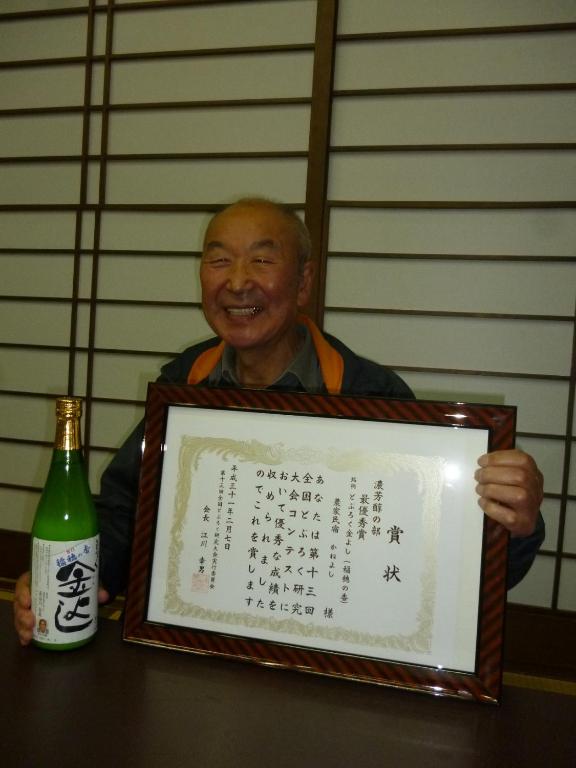 賞状
濃芳醇の部
最優秀賞
銘柄 どぶろく金よし(福穂の香)
農家民宿 かねよし
様
あなたは第十三回
全国どぶろく研究
大会コンテストに
おいて優秀な成績を
収められました
のでこれを賞します
平成三十一年二月七日
第十三回全国どぶろく研究大会実行委員会
会長 江川 幸男
福穂の香
金よし